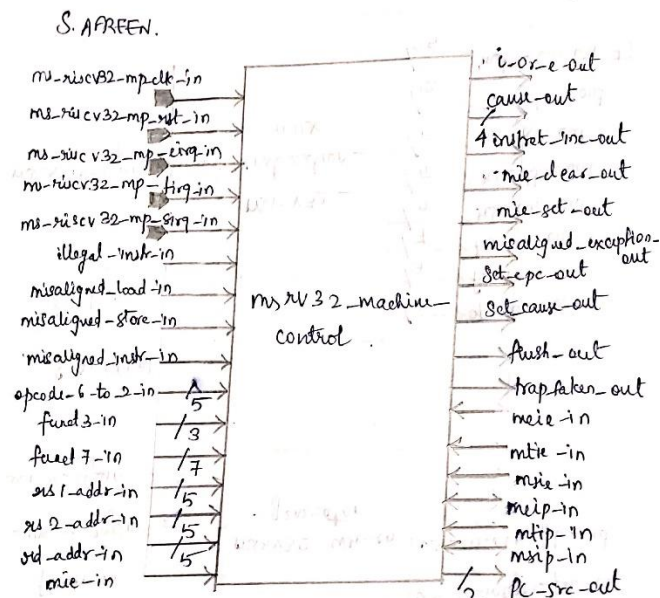 S. AFREEN.
ms-riscv32-mp-clk-in
ms-riscv32-mp-rst-in
ms-riscv32-mp-eirq-in
ms-riscv32-mp-tirq-in
ms-riscv32-mp-sirq-in
illegal-instr-in
misaligned-load-in
misaligned-store-in
misaligned-instr-in
opcode-6-to-2-in
5
funct3-in
3
funct7-in
7
rs1-addr-in
5
rs2-addr-in
5
rd-addr-in
5
mie-in
msrv32-machine-
control
i-or-e-out
cause-out
4
instret-inc-out
mie-clear-out
mie-set-out
misaligned-exception-
out
set-epc-out
set-cause-out
flush-out
trap taken-out
meie-in
mtie-in
msie-in
meip-in
mtip-in
msip-in
2
PC-src-out